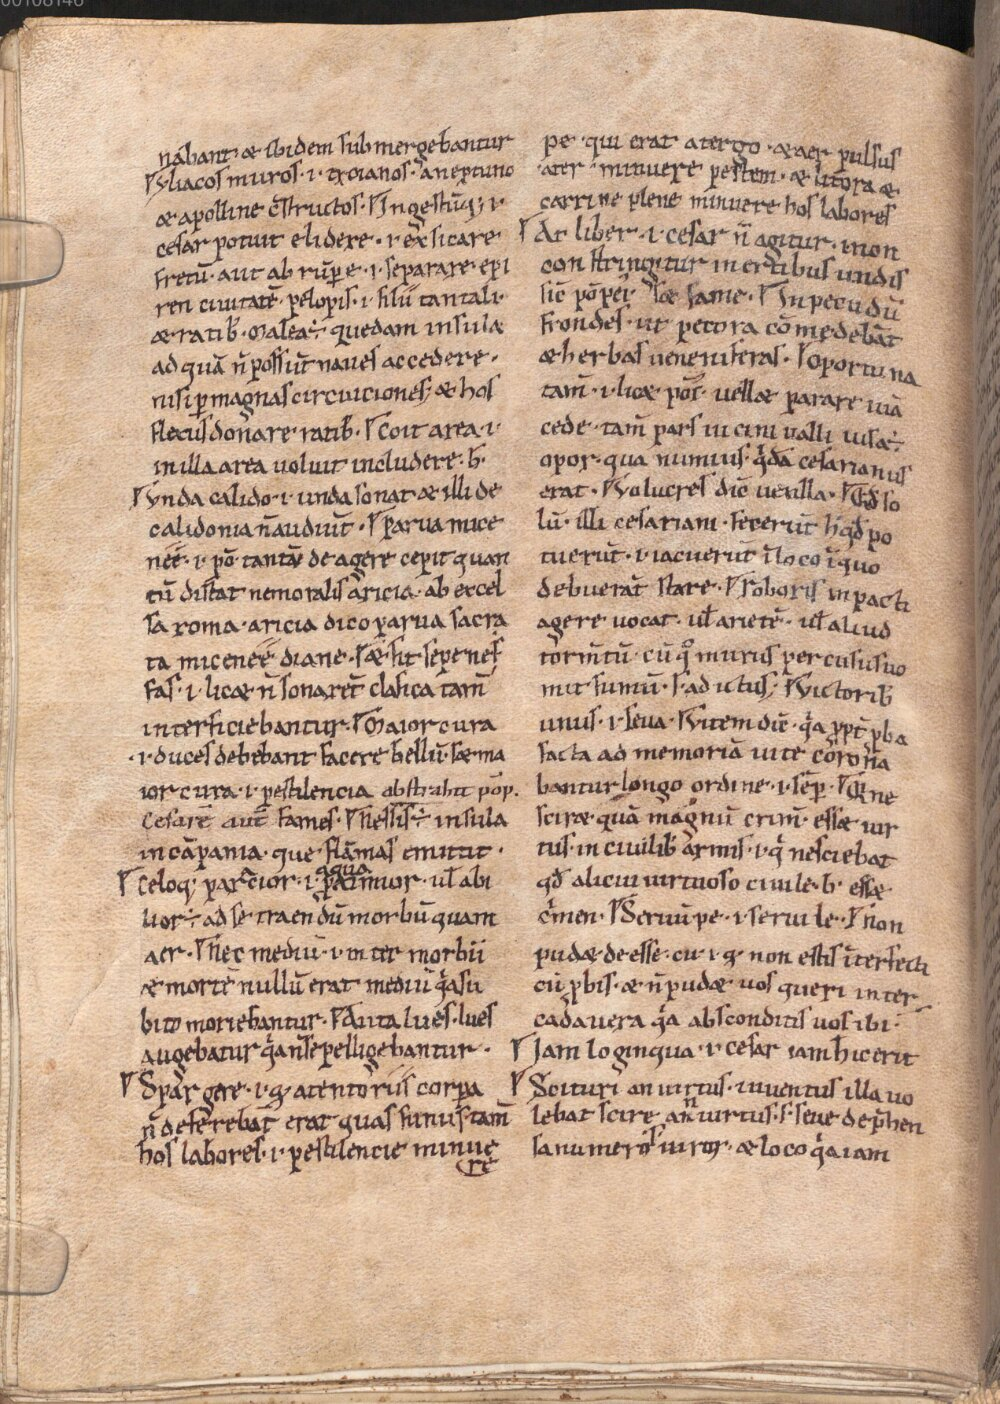 00108146
nabant· æ ibidem submergebantur
Yliacos muros· i· troianos· a neptuno
æ apolline c̄structos· In gestūq; i·
cesar potuit elidere· i· exsicare
fretū· aut ab rūpere· i· separare epi
ren ciuitatē· pelopis· i· filii tantali·
æ ratib· Malea ÷ quedam insula
ad quā n̄ possūt naues accedere·
nisi p magnas circuiciones; æ hos
flexus donare ratib· Coit area· i·
in illa area uoluit includere· b·
Vnda calido· i· unda sonat æ illi de
calidonia n̄ audiūt· Parua mice
neę· i· pō tantū de agere cepit quan
tū distat nemoralis aricia· ab excel
sa roma· aricia dico parua sacra
ta miceneę diane· æ sit sepe nef
fas· i· licæ n̄ sonarēt clasica tam̄
interficiebantur· Maior cura
·i· duces debebant facere bellū· sæ ma
ior cura· i· pestilencia abstrahit pōp·
Cesarē aut̄ fames· Nessis ÷ insula
in cāpania· que flāmas emittit·
Celoq; parcior· i· purior· ul̄ abi
aqua
lior ÷ ad se traendū morbū quam
aer· Nec mediū· i· inter morbū
æ mortē nullū erat mediū q̄a su
bito moriebantur· Aucta lues· lues
augebatur q̄a n̄ sepelligebantur·
Spargere· i· q· a tentoriis corpa
n̄ deferebāt erat quas funus tam̄
hos labores· i· pestilencie minue
re
pe· qui erat a tergo· æ aer pulsus
ater· minuere pestem· æ litora æ
carrine plene minuere hos labores
At liber· i· cesar n̄ agitur· i non
constringitur inertibus undis
sic̄ pōpei· sæ fame· In pecudū
frondes· ut pecora cōmedebāt
æ herbas ueneniferas· oportuna
tam̄· i· licæ pōs· uellæ parare uiā
cede· tam̄ pars uicini ualli uisa ÷
opor· qua numius· q̄dā cesarianus
erat· Volucres dic̄ uexilla· Qđ so
lū· illi cesariani· fecerūt h qđ po
tuerūt· i· iacuerūt ī loco ī quo
debuerāt stare· Roboris inpacti
agere uocat· ul̄ arietē· ul̄ aliud
torm̄tū· cū q̊ murus percusus uo
mit fumū· s· ad ictus; Victorib
unus· i· seua· Vitem dic̄· q̄a ppt̄ pba
facta ad memoriā uite cōrona
bantur longo ordine· i· sēp· Qui ne
sciræ quā magnū crim̄· essæ uir
tus· in ciuilib armis· i· q̄ nesciebat
qđ alicui uirtuoso ciuile· b· essæ
c̄men· Scruū pe· i· seruile· Non
pudæ de esse· cu· i· q· non estis īterfecti
cū pbis· æ n̄ pudæ uos queri inter
cadauera q̄a absconditis uos ibi·
Jam loginqua· i· cesar iam hic erit
Scituri an uirtus· iuuentus illa uo
lebat scire an uirtus· s· seue deprehen
sa numeros iuror· æ loco q̄a iam